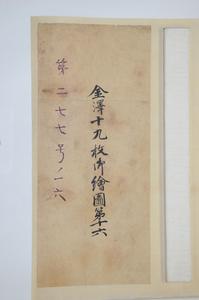 金澤十九枚御繪圖第十六
第二七七号ノ一六